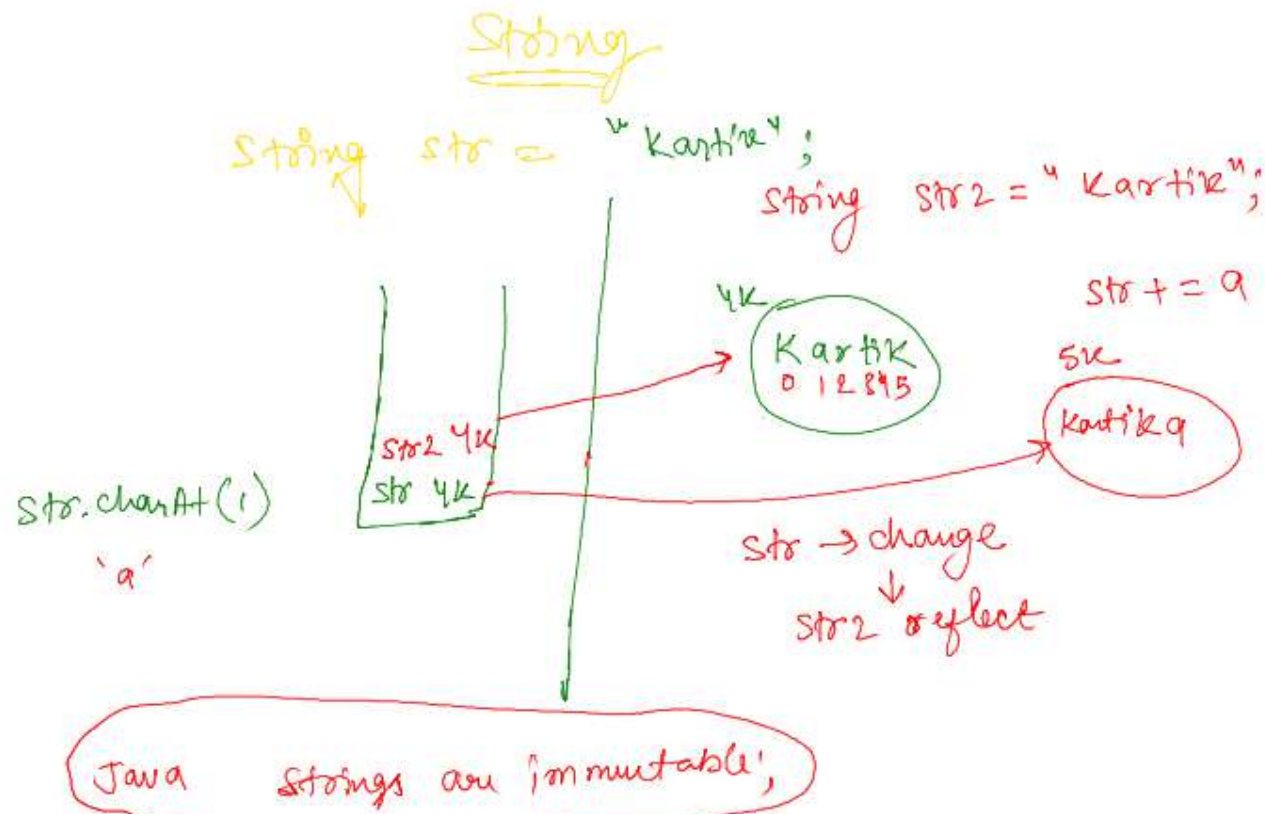 String
String str = "Kartik";
String str2 = "Kartik";
str += a
4K
Kartik
0 12345
5K
Kartika
str2 4K
str 4K
str.charAt(1)
'a'
str → change
↓
str2 reflect
Java strings are immutable;